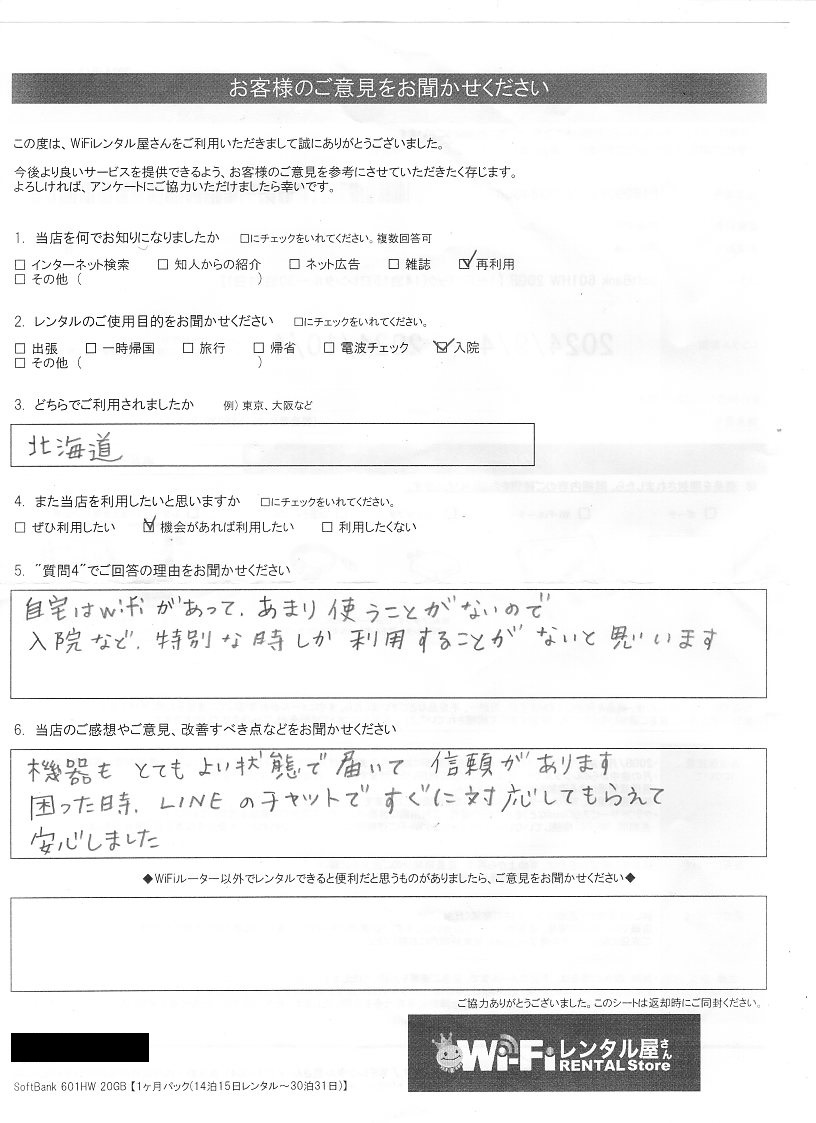 お客様のご意見をお聞かせください
この度は、WiFiレンタル屋さんをご利用いただきまして誠にありがとうございました。
今後より良いサービスを提供できるよう、お客様のご意見を参考にさせていただきたく存じます。
よろしければ、アンケートにご協力いただけましたら幸いです。
1. 当店を何でお知りになりましたか □にチェックをいれてください。複数回答可
□ インターネット検索 □ 知人からの紹介 □ ネット広告 □ 雑誌 ☑ 再利用
□ その他 ( )
2. レンタルのご使用目的をお聞かせください □にチェックをいれてください。
□ 出張 □ 一時帰国 □ 旅行 □ 帰省 □ 電波チェック ☑ 入院
□ その他 ( )
3. どちらでご利用されましたか 例) 東京、大阪など
北海道
4. また当店を利用したいと思いますか □にチェックをいれてください。
□ ぜひ利用したい ☑ 機会があれば利用したい □ 利用したくない
5. "質問4"でご回答の理由をお聞かせください
自宅はwifiがあって、あまり使うことがないので
入院など、特別な時しか利用することがないと思います
6. 当店のご感想やご意見、改善すべき点などをお聞かせください
機器もとてもよい状態で届いて信頼があります
困った時、LINEのチャットですぐに対応してもらえて
安心しました
◆WiFiルーター以外でレンタルできると便利だと思うものがありましたら、ご意見をお聞かせください◆
ご協力ありがとうございました。このシートは返却時にご同封ください。
Wi-Fiレンタル屋さん
RENTAL Store
SoftBank 601HW 20GB【1ヶ月パック(14泊15日レンタル～30泊31日)】